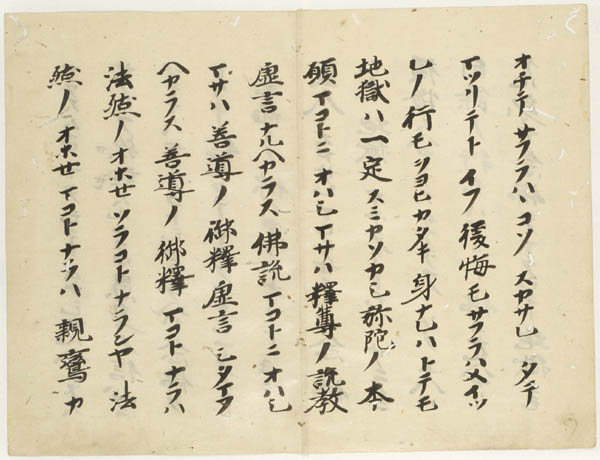 オチテサフラハヽコソスカサレタテ
マツリテトイフ後悔モサフラハメイツ
レノ行モヲヨヒカタキ身ナレハトテモ
地獄ハ一定スミカソカシ弥陀ノ本
願マコトニオハシマサハ釋尊ノ説教
虚言ナルヘカラス佛説マコトニオハシ
マサハ善導ノ御釋虚言シタマフ
ヘカラス善導ノ御釋マコトナラハ
法然ノオホセソラコトナランヤ法
然ノオホセマコトナラハ親鸞カ